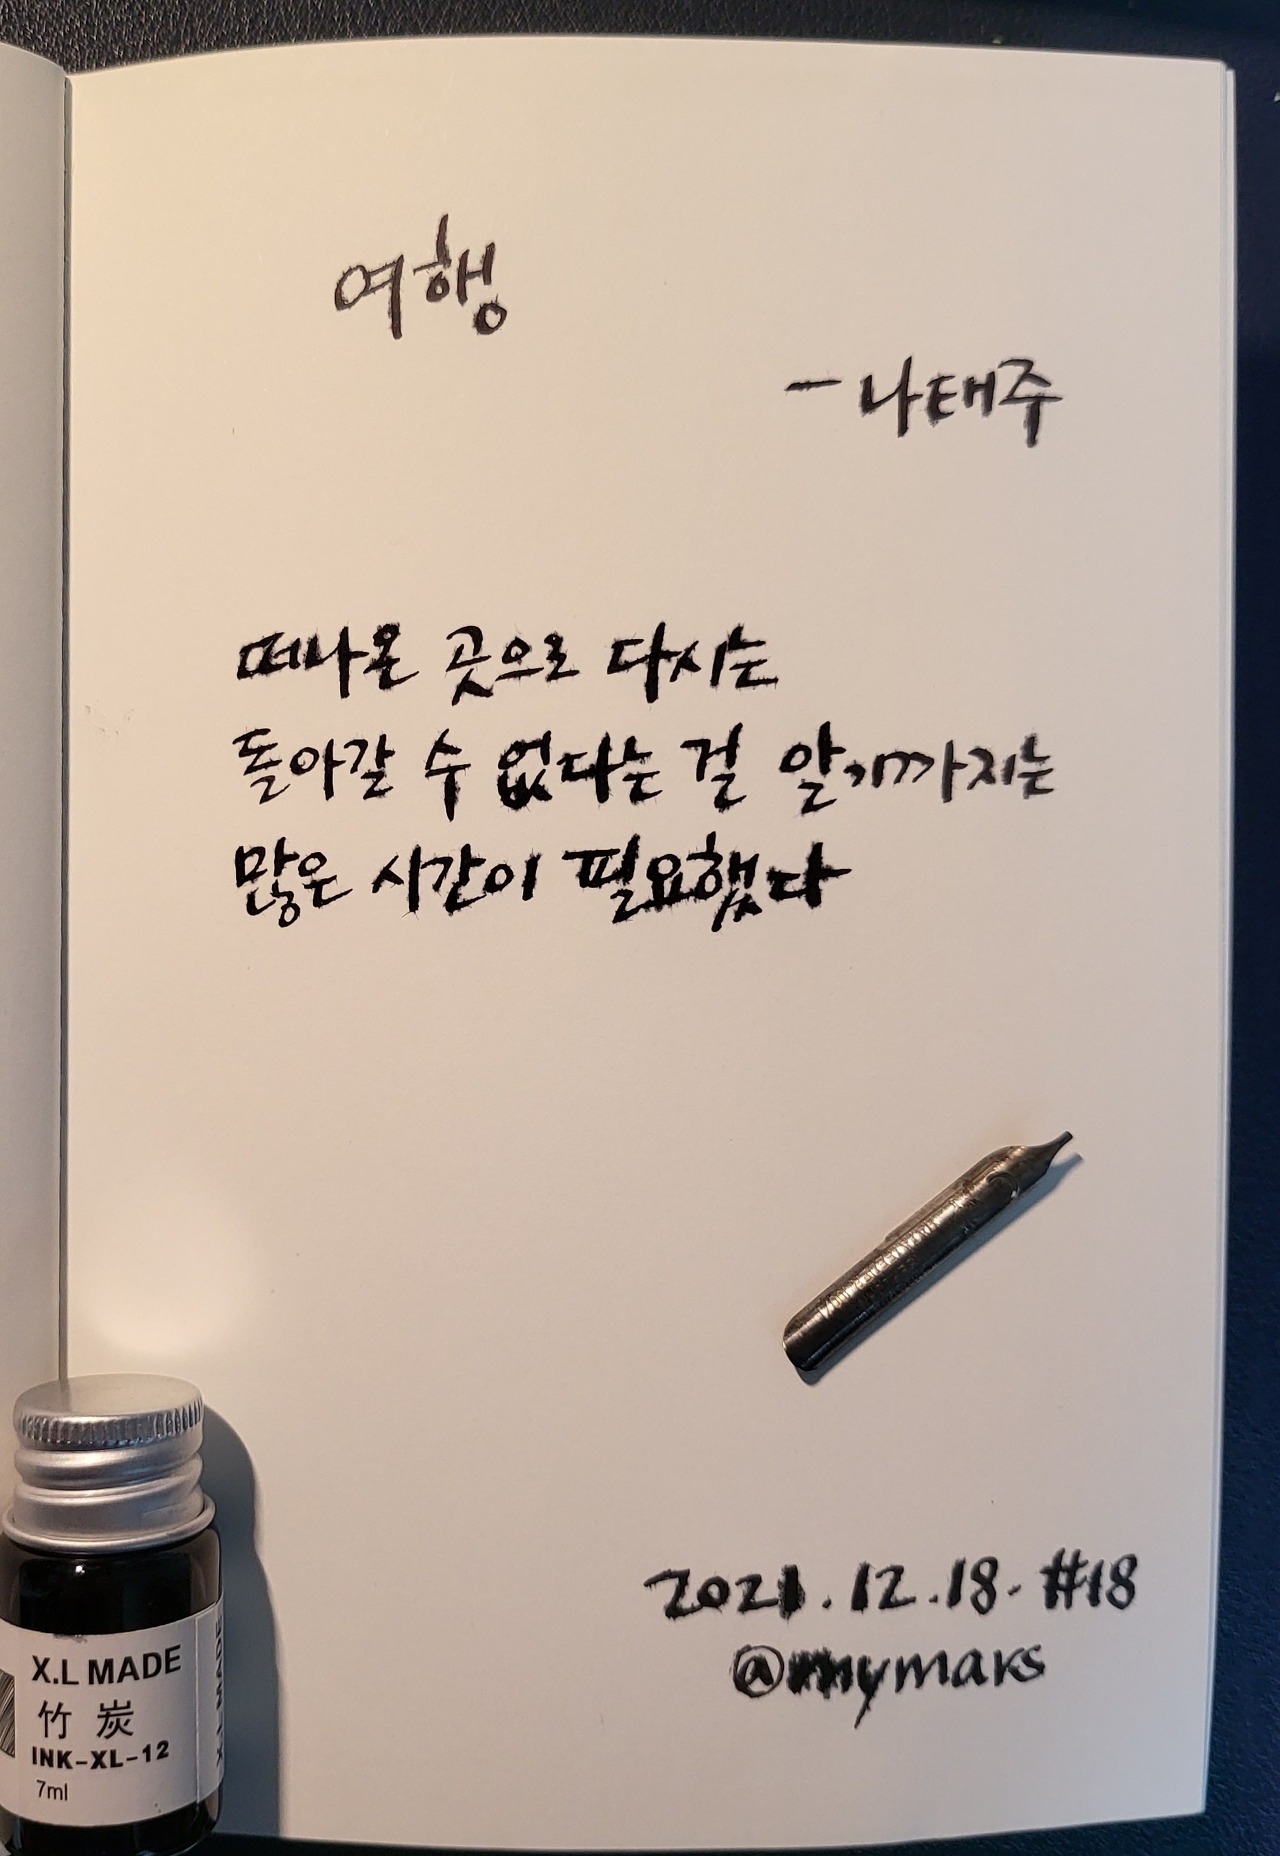 여행
- 나태주
떠나온 곳으로 다시는
돌아갈 수 없다는 걸 알기까지는
많은 시간이 필요했다
2021.12.18. #18
@mymars
X.L MADE
竹 炭
INK-XL-12
7ml
X.L MADE